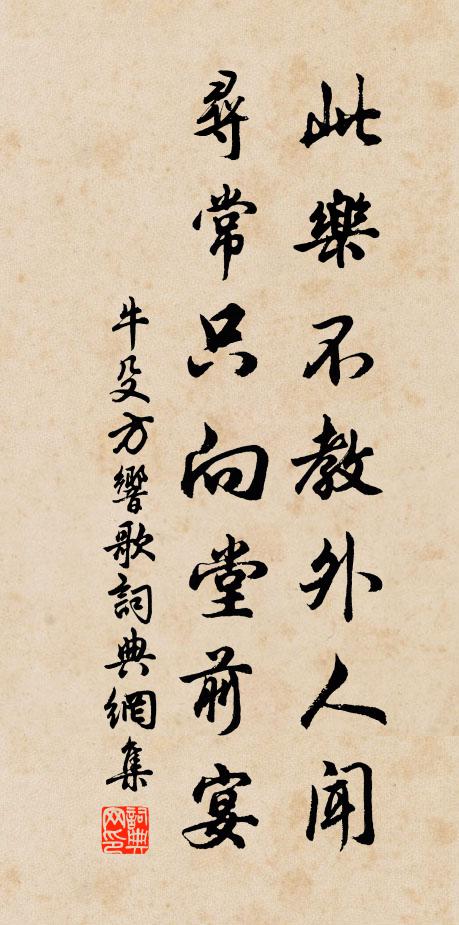 此樂不教外人聞
尋常只向堂前宴
牛殳方響歌詞典網集
詞典网印